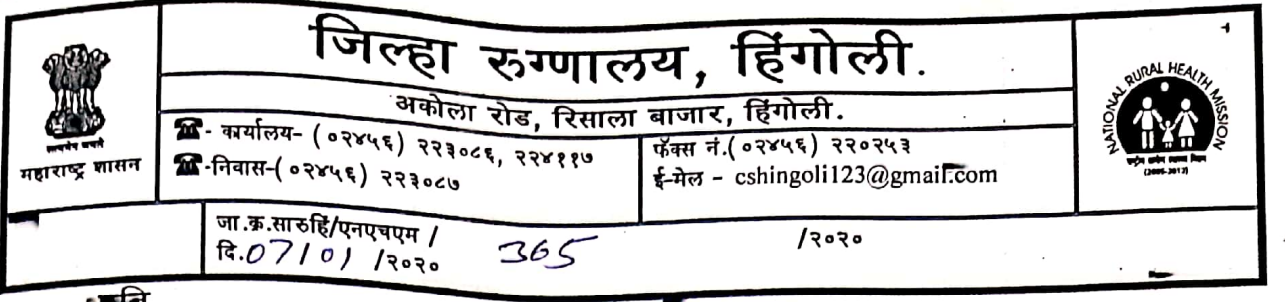 जिल्हा रुग्णालय, हिंगोली.
अकोला रोड, रिसाला बाजार, हिंगोली.
सत्यमेव जयते
महाराष्ट्र शासन
☎- कार्यालय- (०२४५६) २२३०८६, २२४११७
☎-निवास-(०२४५६) २२३०८७
फॅक्स नं.(०२४५६) २२०२५३
ई-मेल - cshingoli123@gmail.com
NATIONAL RURAL HEALTH MISSION
राष्ट्रीय ग्रामीण स्वास्थ्य मिशन
(2005-2012)
जा.क्र.सारुहिं/एनएचएम / 365 /२०२०
दि.07/01/२०२०